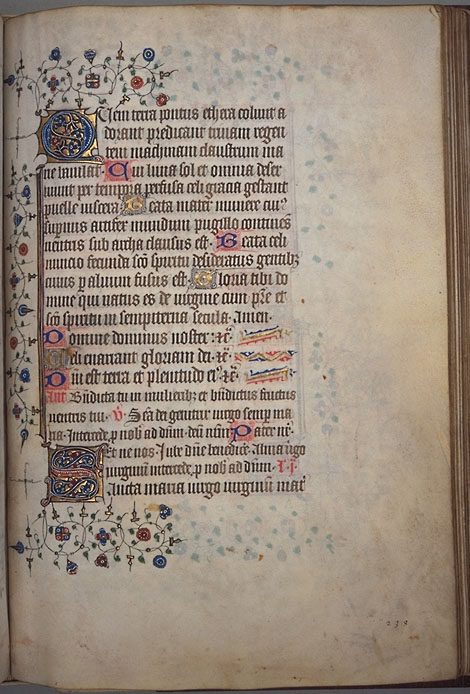 Quem terra pontus ethera colunt a
dorant predicant trinam regen
tem machinam claustrum ma
rie baiulat. Cui luna sol et omnia deser
uiunt per tempora perfusa celi gracia gestant
puelle uiscera. Beata mater munere cui9
supernus artifex mundum pugillo continens
uentris sub archa clausus est. Beata celi
nuncio fecunda sco spiritu desideratus gentibus
cuius per aluum fusus est. Gloria tibi do
mine qui natus es de uirgine cum pre et
sco spiritu in sempiterna secula. Amen.
Domine dominus noster: etc
Celi enarrant gloriam dei. etc
Dni est terra et plenitudo ei9. etc
Ant Bndicta tu in mulieribz et bndictus fructus
uentris tui. V. Sca dei genitrix uirgo semper ma
ria. Intercede p nob ad dnm deum nrm Pater nr.
Et ne nos. Iube dne benedicere. Alma uirgo
uirginum intercedat p nob ad dnm.
Sancta maria uirgo uirginum mater